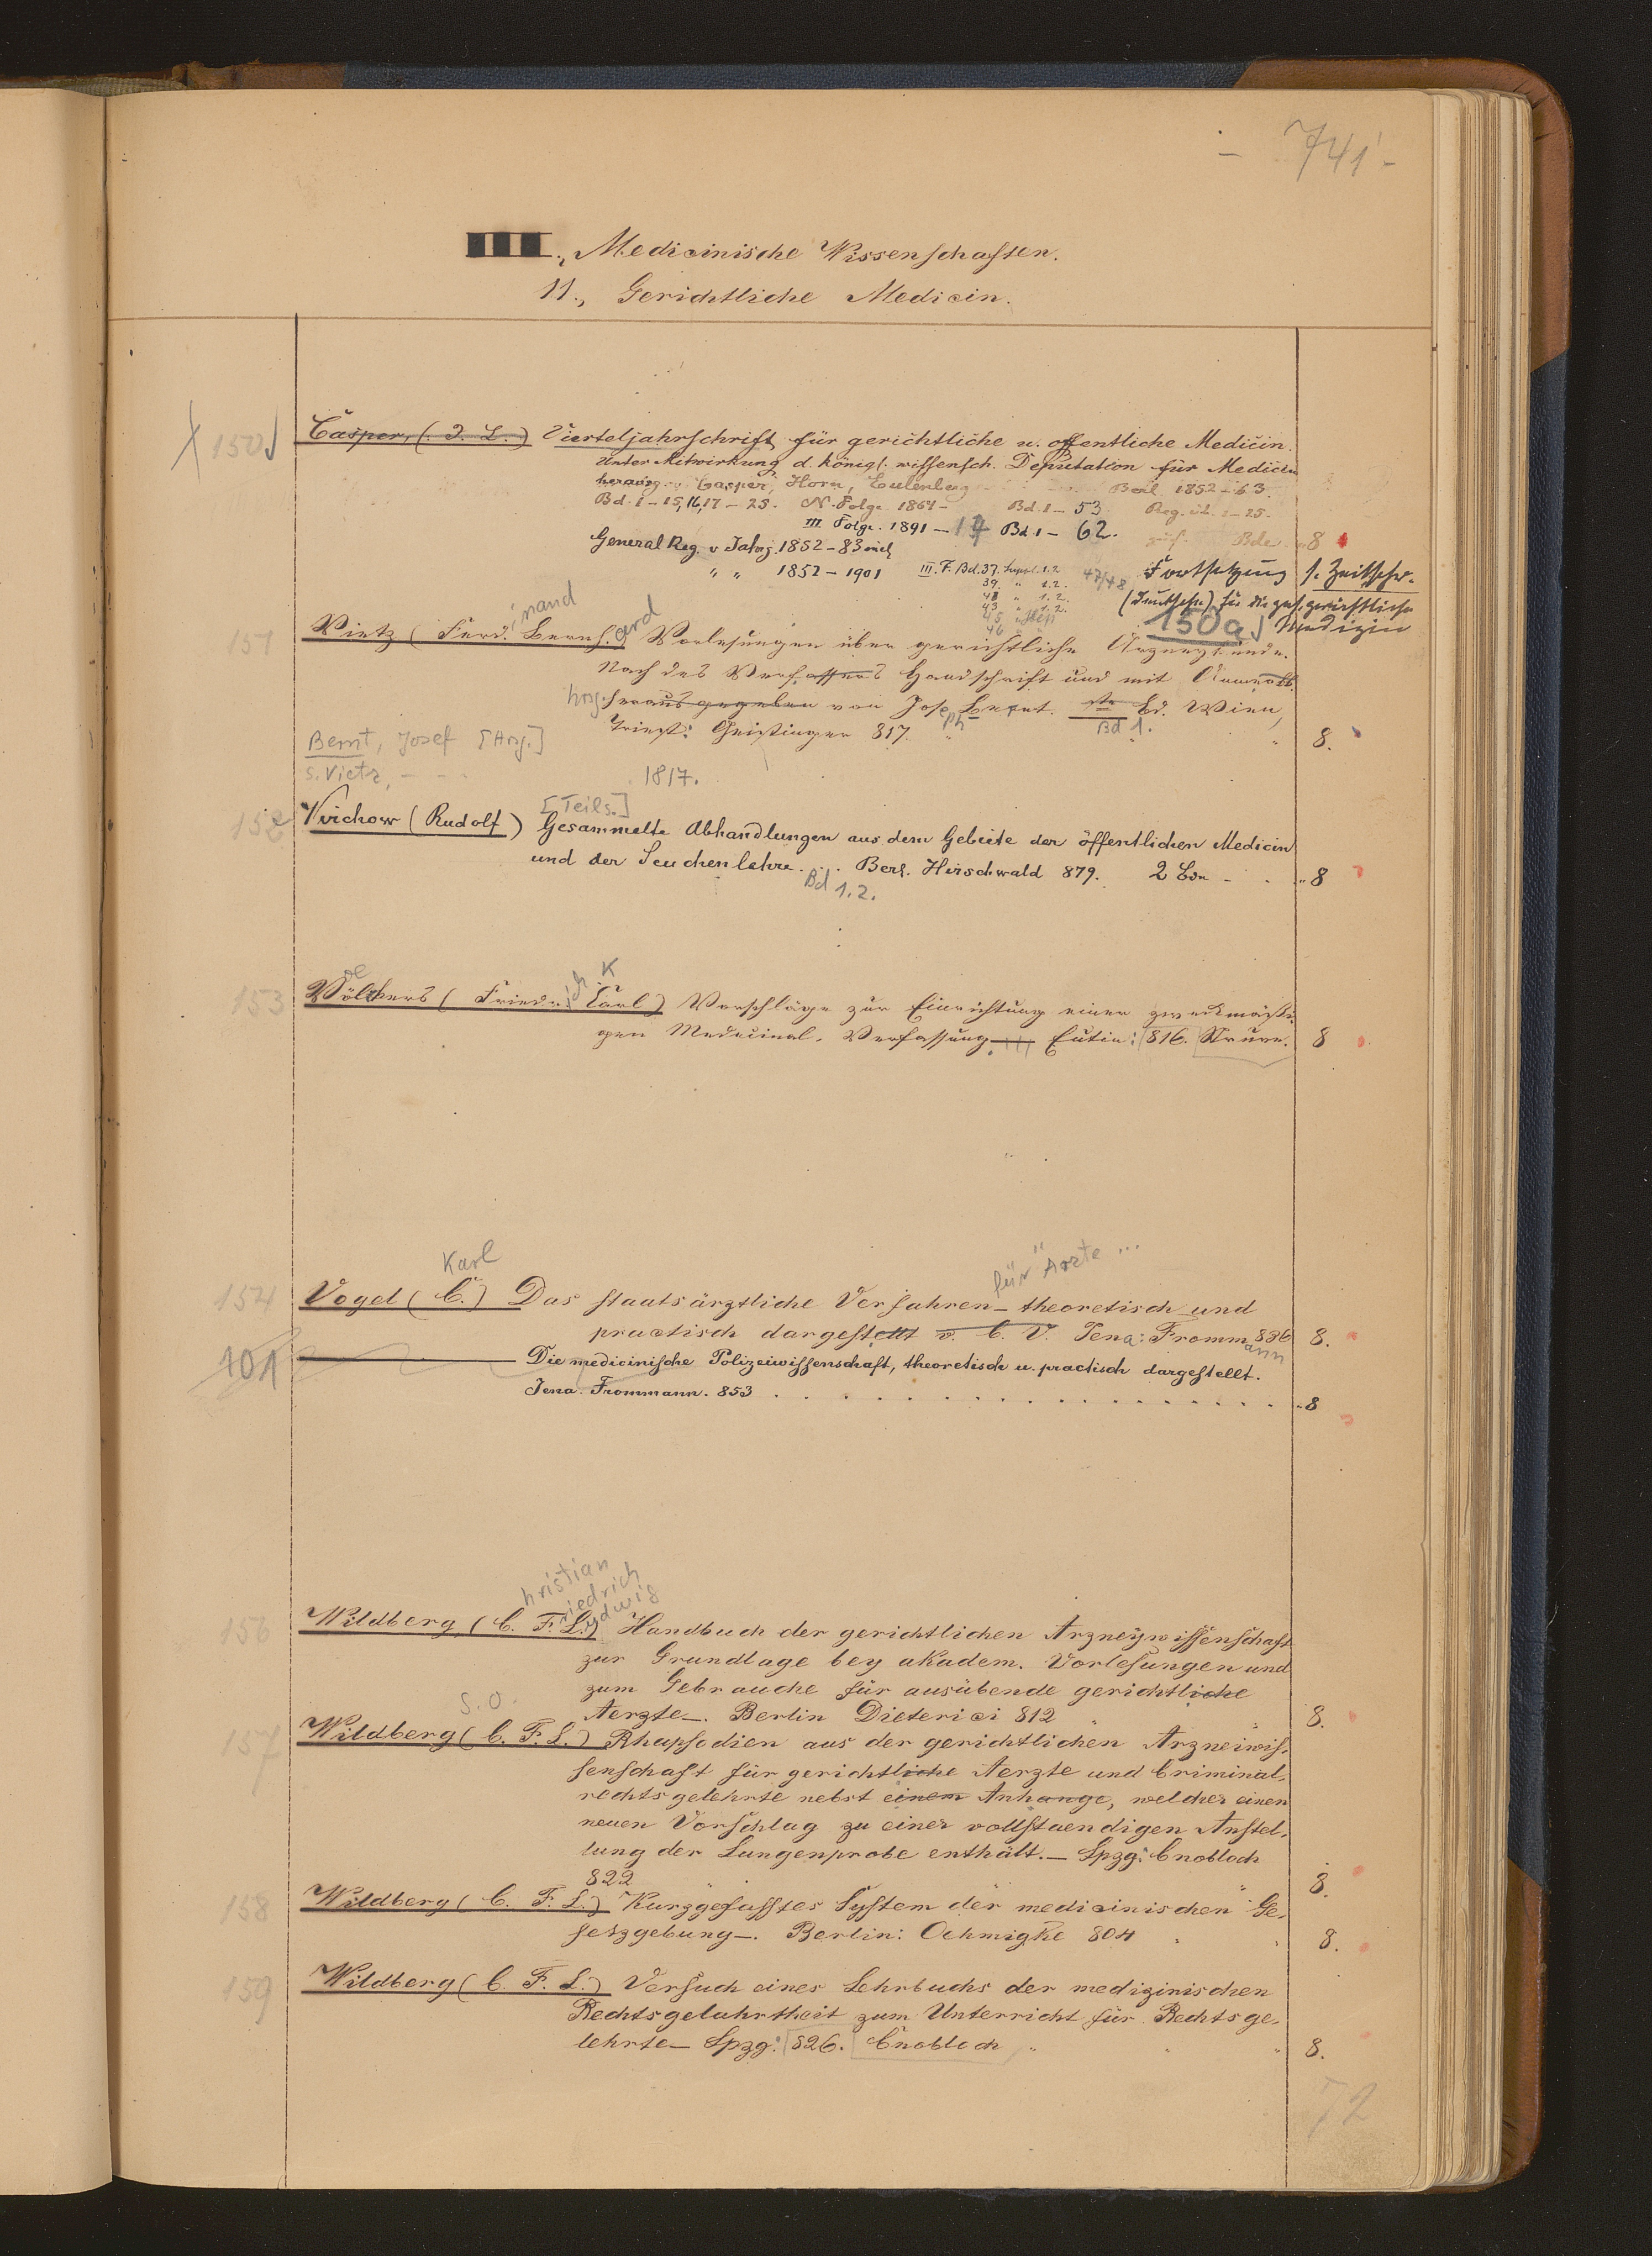 - 741 -
III., Medicinische Wissenschaften.
11., Gerichtliche Medicin.
150 Casper, (J. L.) Vierteljahrschrift für gerichtliche u. öffentliche Medicin.
Unter Mitwirkung d. königl. wissensch. Deputation für Medicin
herausg. v. Casper, Horn, Eulenberg Berl. 1852-63.
Bd. 1-15, 16, 17-25. N. Folge 1864- Bd. 1-53. Reg. 1-25.
III Folge. 1891- Bd. 1-62. Bde 8
General Reg. v Jahrg. 1852-83
" " 1852-1901 III. F. Bd. 37. Suppl. 1.2 47/48 Fortsetzung s. Zeitschr.
39. " 1.2.
41 " 1.2. (Deutsche) für die ges. gerichtliche
43 " 1.2.
45
46
150a Medizin
inand ard
151 Vietz (Ferd. Bernh.) Vorlesungen über gerichtliche Arzneykunde.
Nach des Verfassers Handschrift und mit
hrsg. herausgegeben von Joseph Bernt. Bd. Wien,
Bd 1.
Triest: Geistinger 817. " 8.
Bernt, Josef [Hrsg.]
s. Vietz, - -
1817.
[Teils.]
152 Virchow (Rudolf) Gesammelte Abhandlungen aus dem Gebiete der öffentlichen Medicin
und der Seuchenlehre. . . Berl. Hirschwald 879. 2 Bde - . " 8
Bd 1.2.
K
153 Völckers (Friedr. Carl) Vorschläge zur Einrichtung einer zweckmässi-
gen Medicinal-Verfassung Eutin: 816. Struve. 8
Karl für Ärzte ...
154 Vogel (C.) Das staatsärztliche Verfahren - theoretisch und
practisch dargestellt v. C. V. Jena: Frommann 836 8.
101 Die medicinische Polizeiwissenschaft, theoretisch u. practisch dargestellt.
Jena. Frommann. 853 . . . . . . . . . " 8
hristian
riedrich
udwig
156 Wildberg (C. F. L.) Handbuch der gerichtlichen Arzneywissenschaft
zur Grundlage bey akadem. Vorlesungen und
zum Gebrauche für ausübende gerichtliche
Aerzte -. Berlin Dieterici 812 " 8.
s. o.
157 Wildberg (C. F. L.) Rhapsodien aus der gerichtlichen Arzneiwis-
senschaft für gerichtliche Aerzte und Criminal-
rechtsgelehrte nebst einem Anhange, welcher einen
neuen Vorschlag zu einer vollstaendigen Anstel-
lung der Lungenprobe enthält. - Lpzg: Cnobloch
822 " 8.
158 Wildberg (C. F. L.) Kurzgefasstes System der medicinischen Ge-
setzgebung -. Berlin: Oehmigke 804 " 8.
159 Wildberg (C. F. L.) Versuch eines Lehrbuchs der medizinischen
Rechtsgelahrtheit zum Unterricht für Rechtsge-
lehrte - Lpzg: 826. Cnobloch " 8.
72